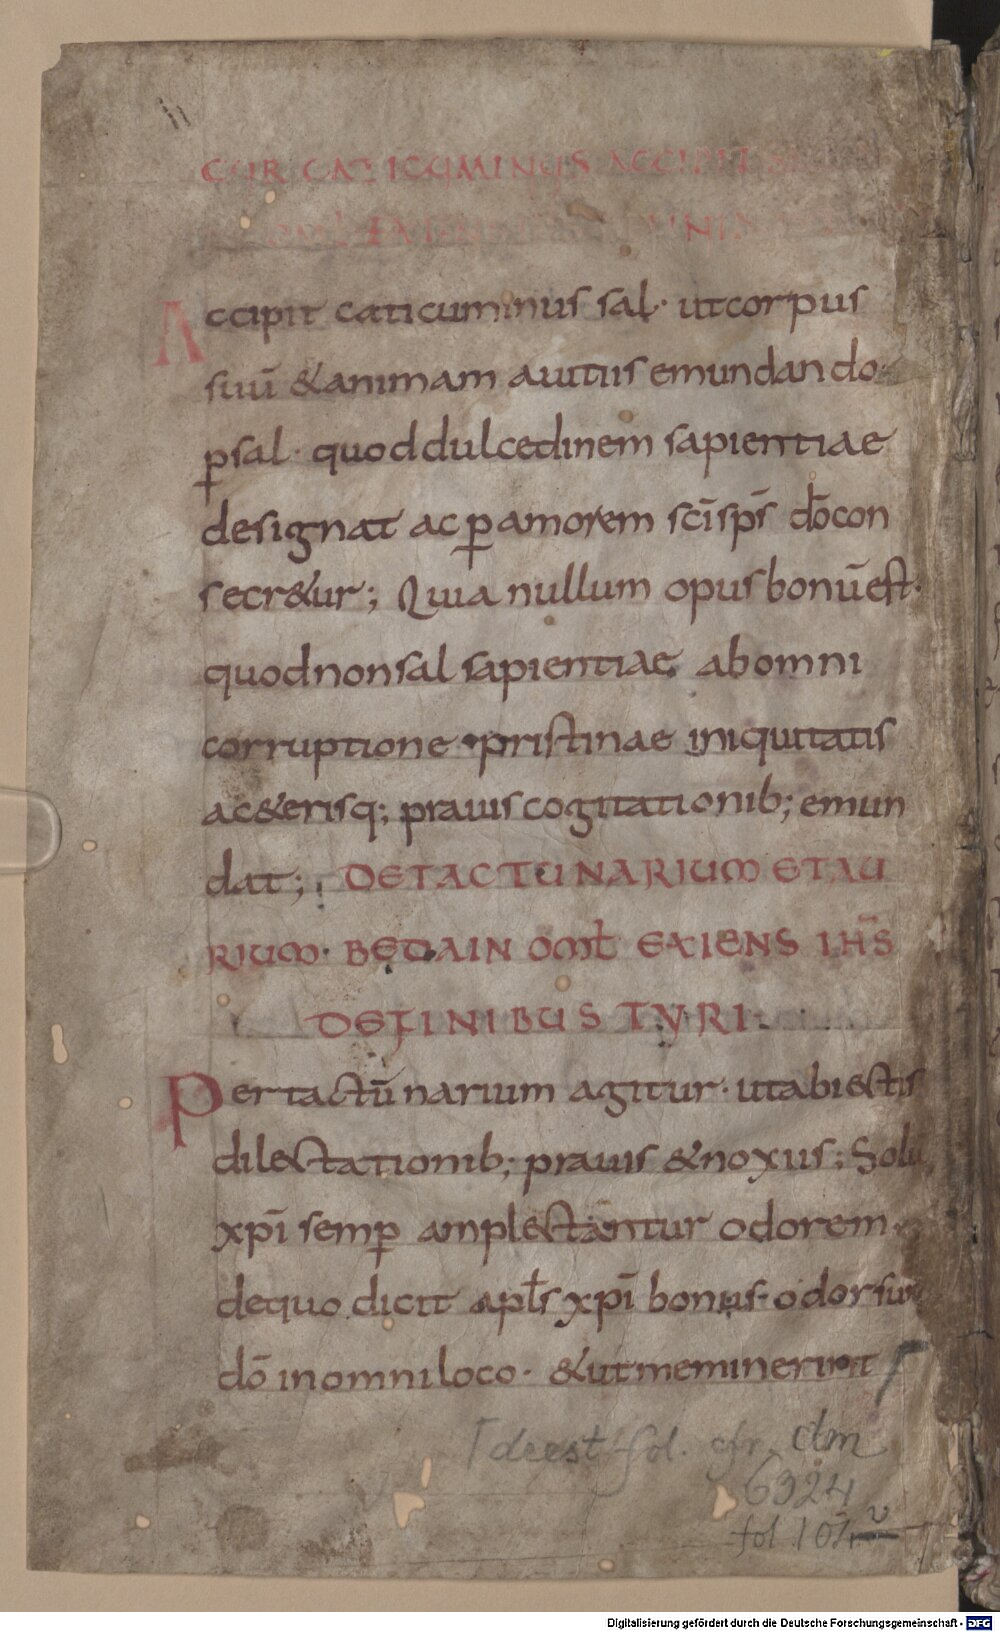 CUR CATICUMINUS ACCIPIT
Accipit caticuminus sal· ut corpus
suū & animam a uitiis emundando·
p̱ sal· quod dulcedinem sapientiae
designat ac p̱ amorem sc̄i sp̄s dō con
secr&ur; Quia nullum opus bonū est·
quod non sal sapientiae ab omni
corruptione pristinae iniquitatis
ac &erisq; prauis cogitationib; emun
dat; DE TACTU NARIUM ET AU
RIUM· BEDA IN OMƚ EXIENS IHS̄
DE FINIBUS TYRI
Per tactū narium agitur· ut abiectis
dilectationib; prauis & noxiis; Solū
xp̄i semp̱ amplectantur odorem·
de quo dicit apƚs xp̄i bonus odor sum
dō in omni loco· & ut meminerint
⌈ deest fol. cfr. clm
6324
fol 104 v
Digitalisierung gefördert durch die Deutsche Forschungsgemeinschaft - DFG